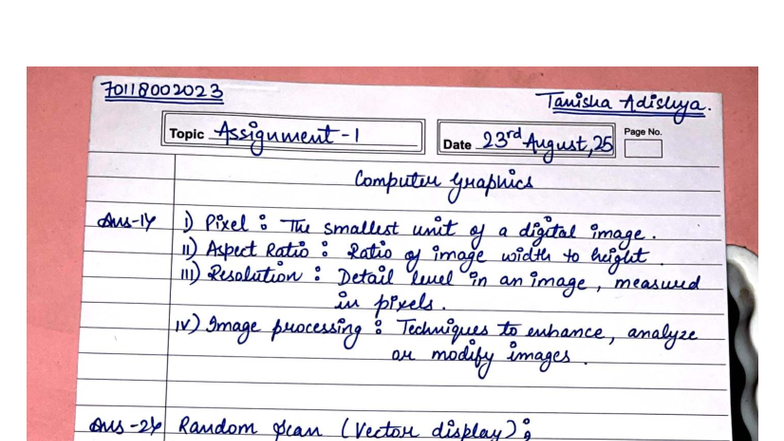 70118002023
Tanisha Adishya.
Topic Assignment-1
Date 23rd August, 25
Page No.
Computer Graphics
Ans-1) i) Pixel : The smallest unit of a digital image.
ii) Aspect Ratio : Ratio of image width to height.
iii) Resolution : Detail level in an image, measured
in pixels.
iv) Image processing : Techniques to enhance, analyze
or modify images.
Ans-2) Random Scan (Vector display):